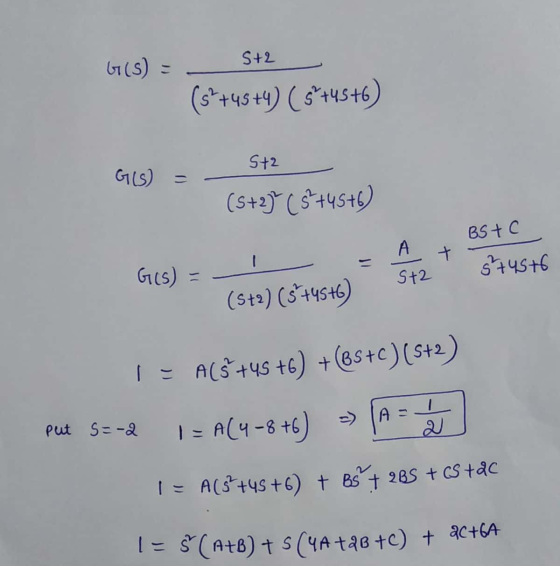 G(S) = S+2 / (S²+4S+4) (S²+4S+6)
G(S) = S+2 / (S+2)² (S²+4S+6)
G(S) = 1 / (S+2) (S²+4S+6) = A / S+2 + BS+C / S²+4S+6
1 = A(S²+4S+6) + (BS+C) (S+2)
Put S=-2 1 = A(4-8+6) ⇒ A = 1/2
1 = A(S²+4S+6) + BS² + 2BS + CS + 2C
1 = S²(A+B) + S(4A+2B+C) + 2C+6A